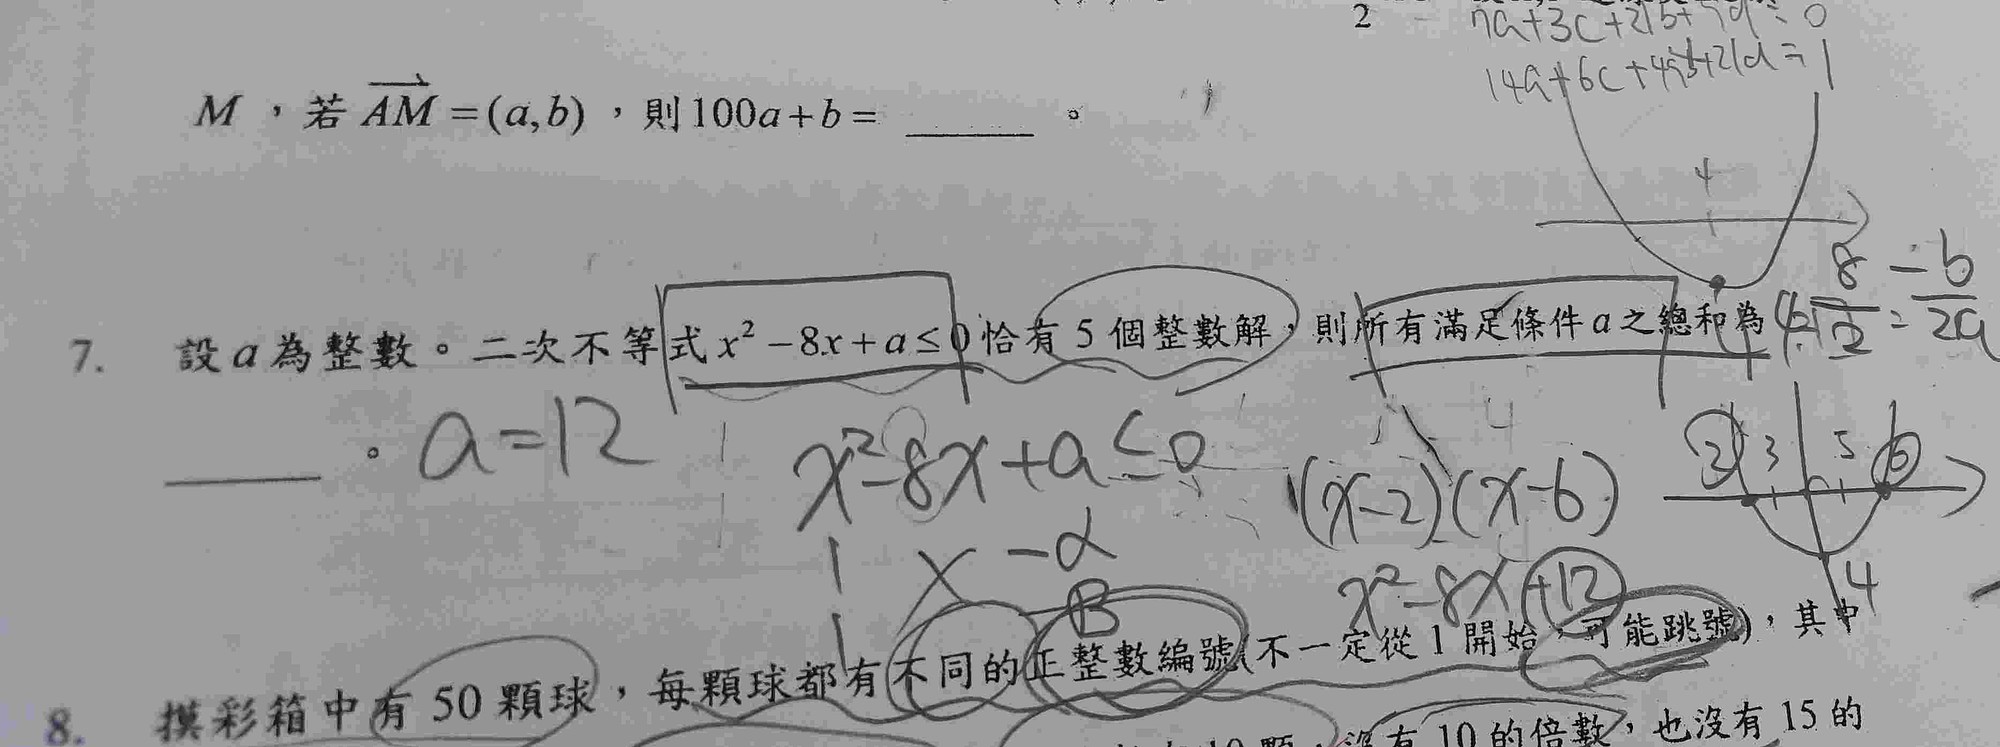 2
7a+3c+21b+7d=0
14a+6c+49b+21d=1
M，若 AM = (a,b)，則100a+b= ______。
4
7. 設a為整數。二次不等式x²−8x+a≤0恰有5個整數解，則所有滿足條件a之總和為
8/2 = −b/2a
______。 a=12
x²−8x+a≤0
(x−2)(x−6)
2 3 5 6
1 x −α
x²−8x+12
4
1 β
8. 摸彩箱中有50顆球，每顆球都有不同的正整數編號(不一定從1開始，可能跳號)，其中
10顆，沒有10的倍數，也沒有15的